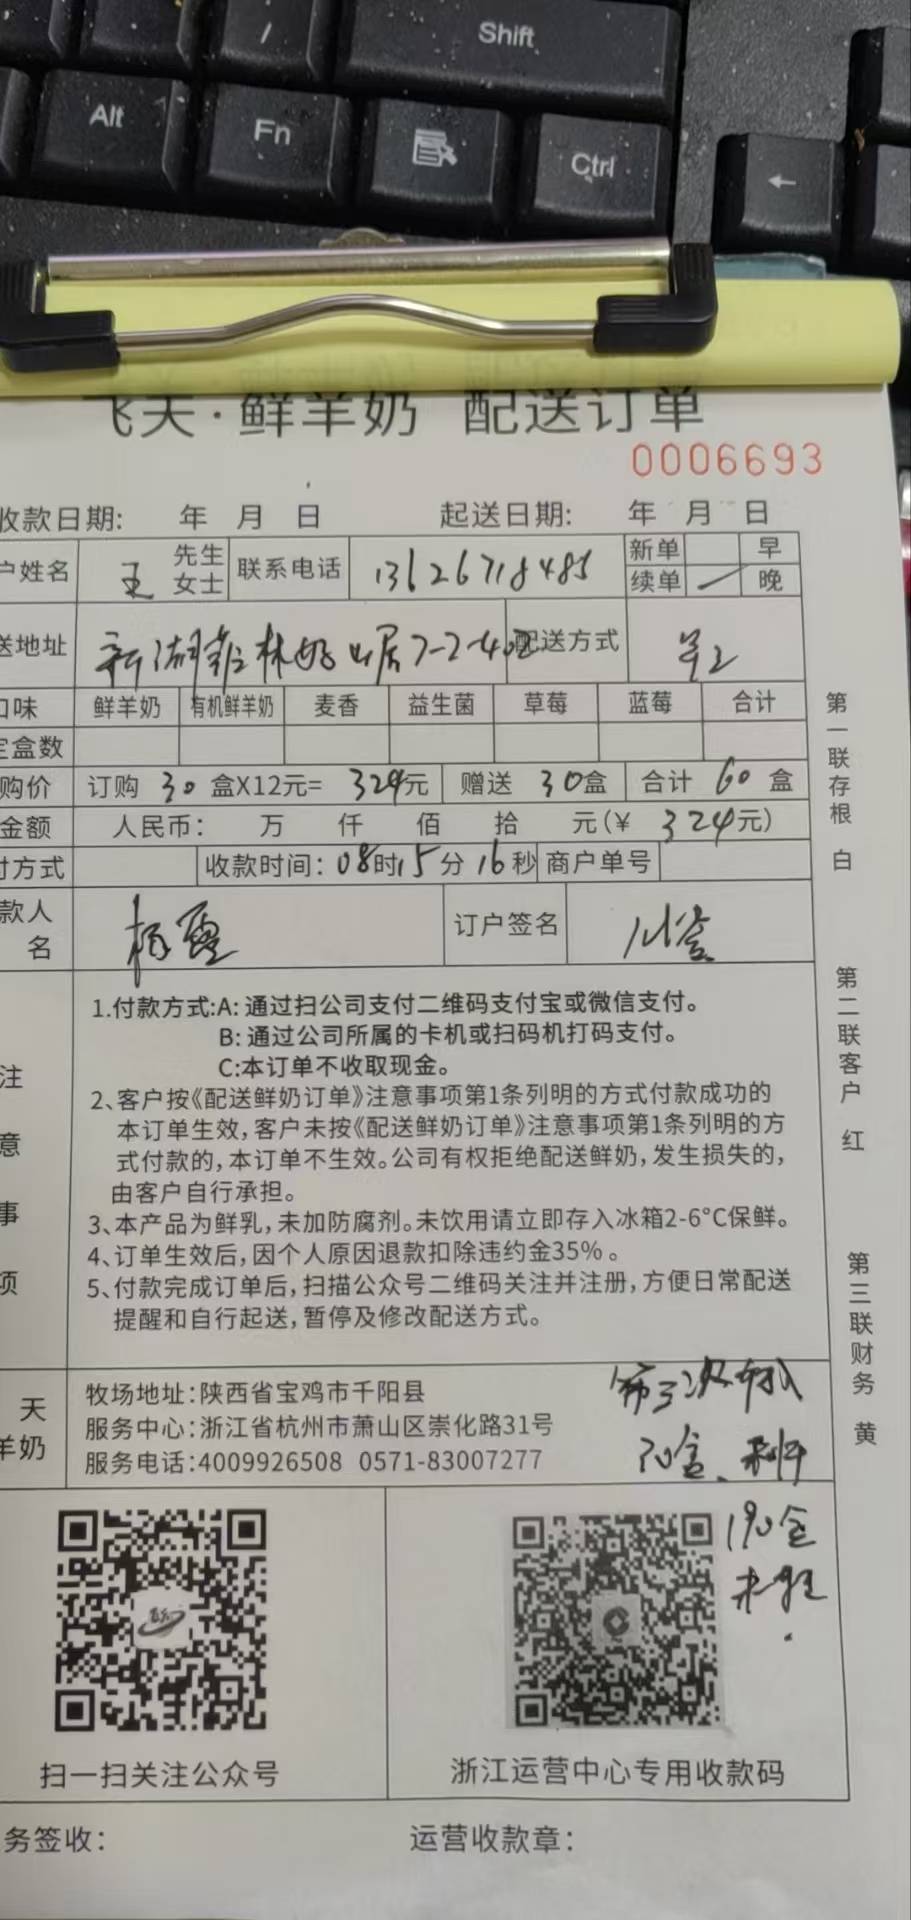 Shift
Alt
Fn
Ctrl
←
飞天·鲜羊奶 配送订单
0006693
收款日期: 年 月 日 起送日期: 年 月 日
户姓名 王 先生 女士 联系电话 13626718485 新单 早
续单 晚
送地址 新湖 林 居7-2-402 配送方式
口味 鲜羊奶 有机鲜羊奶 麦香 益生菌 草莓 蓝莓 合计
定盒数
购价 订购 30 盒X12元= 324元 赠送 30盒 合计 60 盒
金额 人民币: 万 仟 佰 拾 元(¥ 324元)
付方式 收款时间: 08时15分16秒 商户单号
款人
名 杨 订户签名
注意事项
1.付款方式:A: 通过扫公司支付二维码支付宝或微信支付。
B: 通过公司所属的卡机或扫码机打码支付。
C:本订单不收取现金。
2、客户按《配送鲜奶订单》注意事项第1条列明的方式付款成功的
本订单生效,客户未按《配送鲜奶订单》注意事项第1条列明的方
式付款的,本订单不生效。公司有权拒绝配送鲜奶,发生损失的,
由客户自行承担。
3、本产品为鲜乳,未加防腐剂。未饮用请立即存入冰箱2-6°C保鲜。
4、订单生效后,因个人原因退款扣除违约金35%。
5、付款完成订单后,扫描公众号二维码关注并注册,方便日常配送
提醒和自行起送,暂停及修改配送方式。
天
羊奶
牧场地址:陕西省宝鸡市千阳县
服务中心:浙江省杭州市萧山区崇化路31号
服务电话:4009926508 0571-83007277
第三次
盒
190盒
扫一扫关注公众号
浙江运营中心专用收款码
务签收:
运营收款章:
第一联存根 白
第二联客户 红
第三联财务 黄